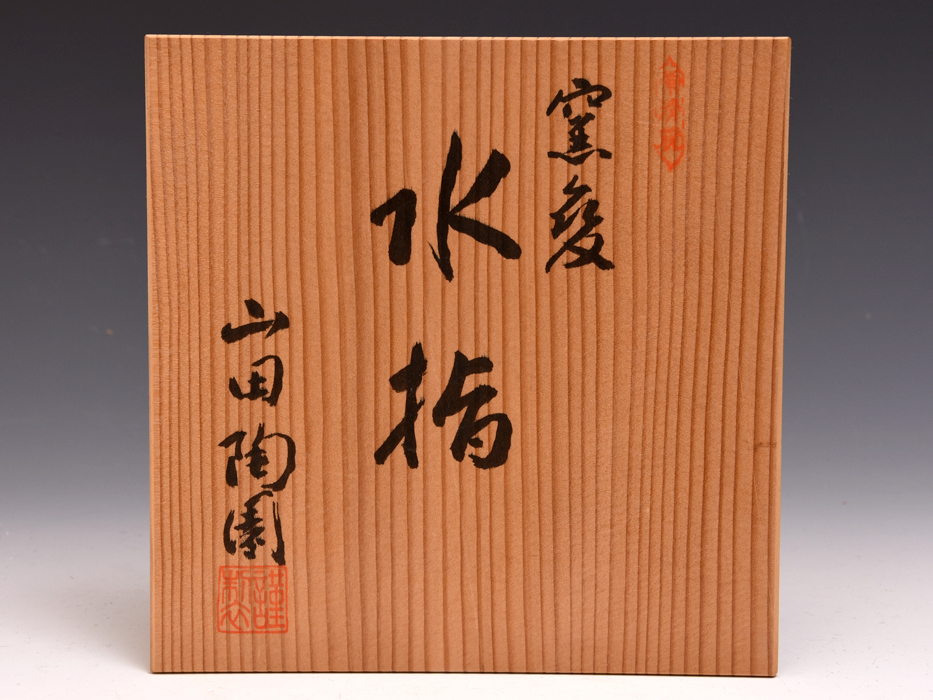 窯変
水指
山田陶園